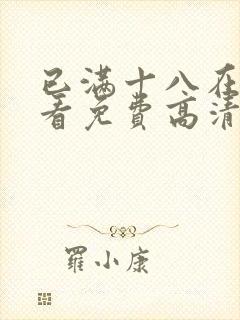 已满十八在
看免费高清
羅小康